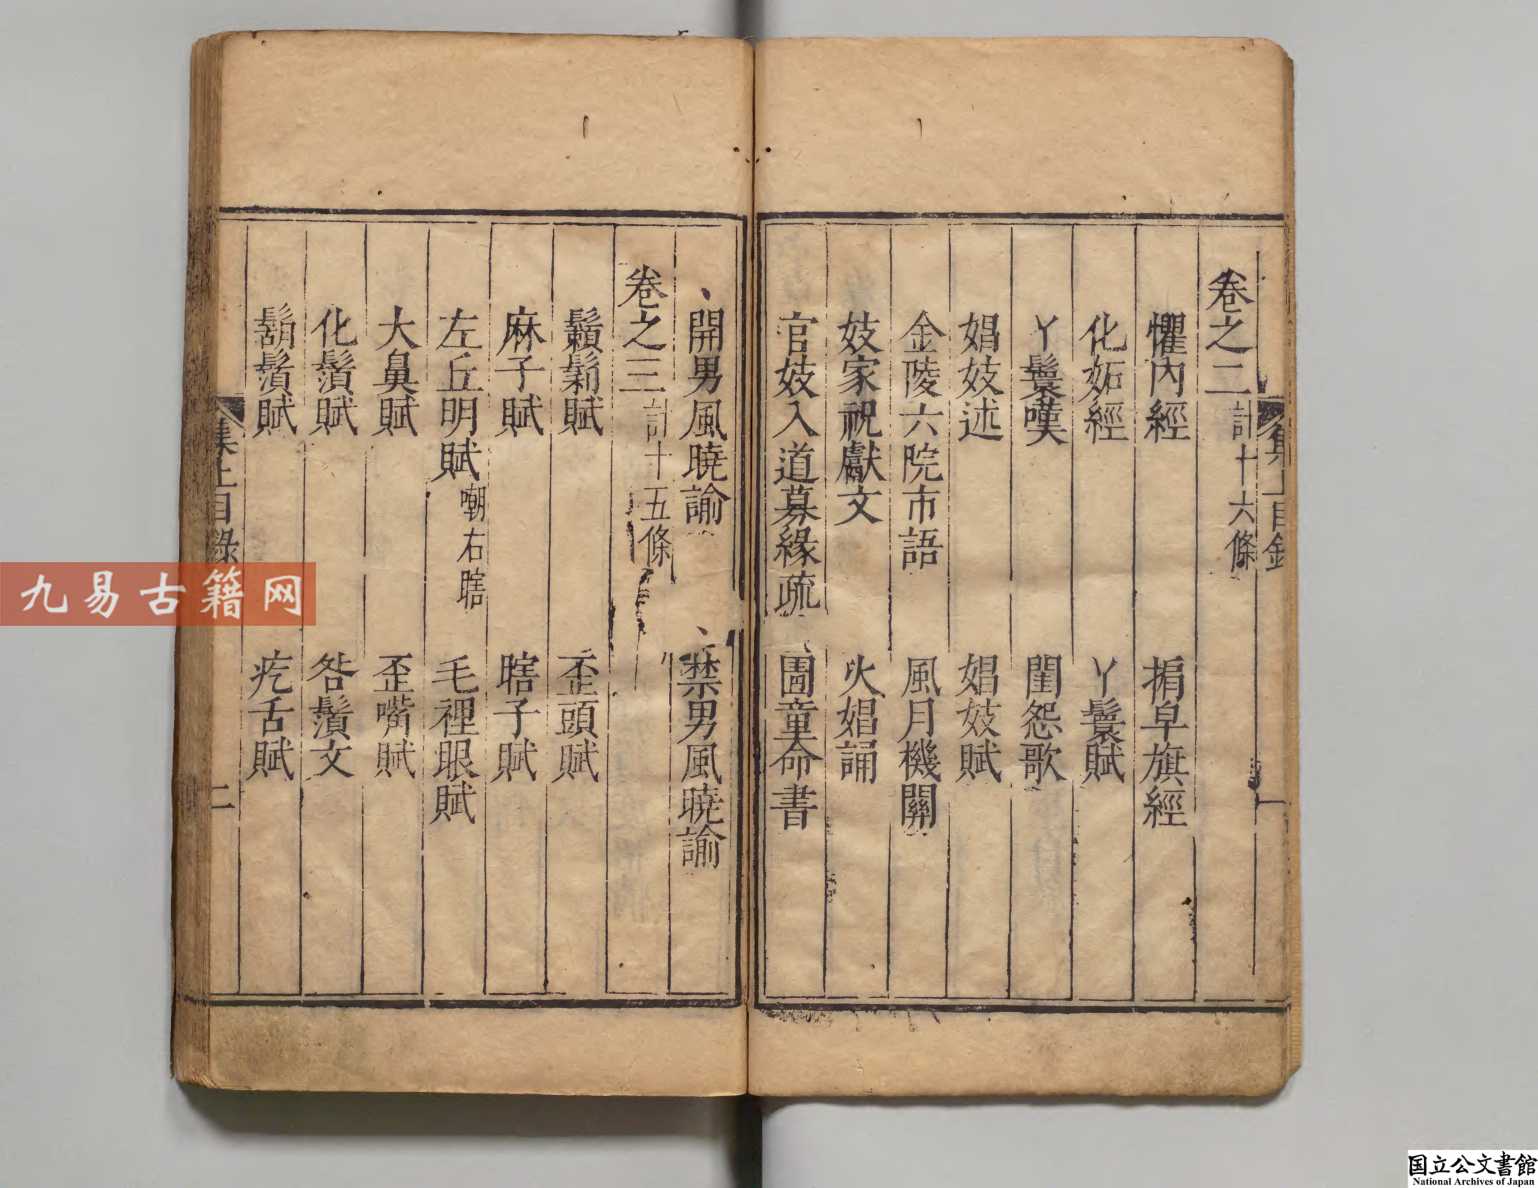 卷之二 計十六條
懼內經 掮皁旗經
化妬經 丫鬟賦
丫鬟嘆 閨怨歌
娼妓述 娼妓賦
金陵六院市語 風月機關
妓家祝獻文 火娼誦
官妓入道募緣疏 圊童命書
開男風曉諭 禁男風曉諭
卷之三 計十五條
鬎鬁賦 歪頭賦
麻子賦 瞎子賦
左丘明賦 嘲右瞎 毛裡眼賦
大鼻賦 歪嘴賦
化鬚賦 咎鬚文
鬍鬚賦 疙舌賦
集上目錄 二
集上目錄 一
九易古籍网
国立公文書館
National Archives of Japan